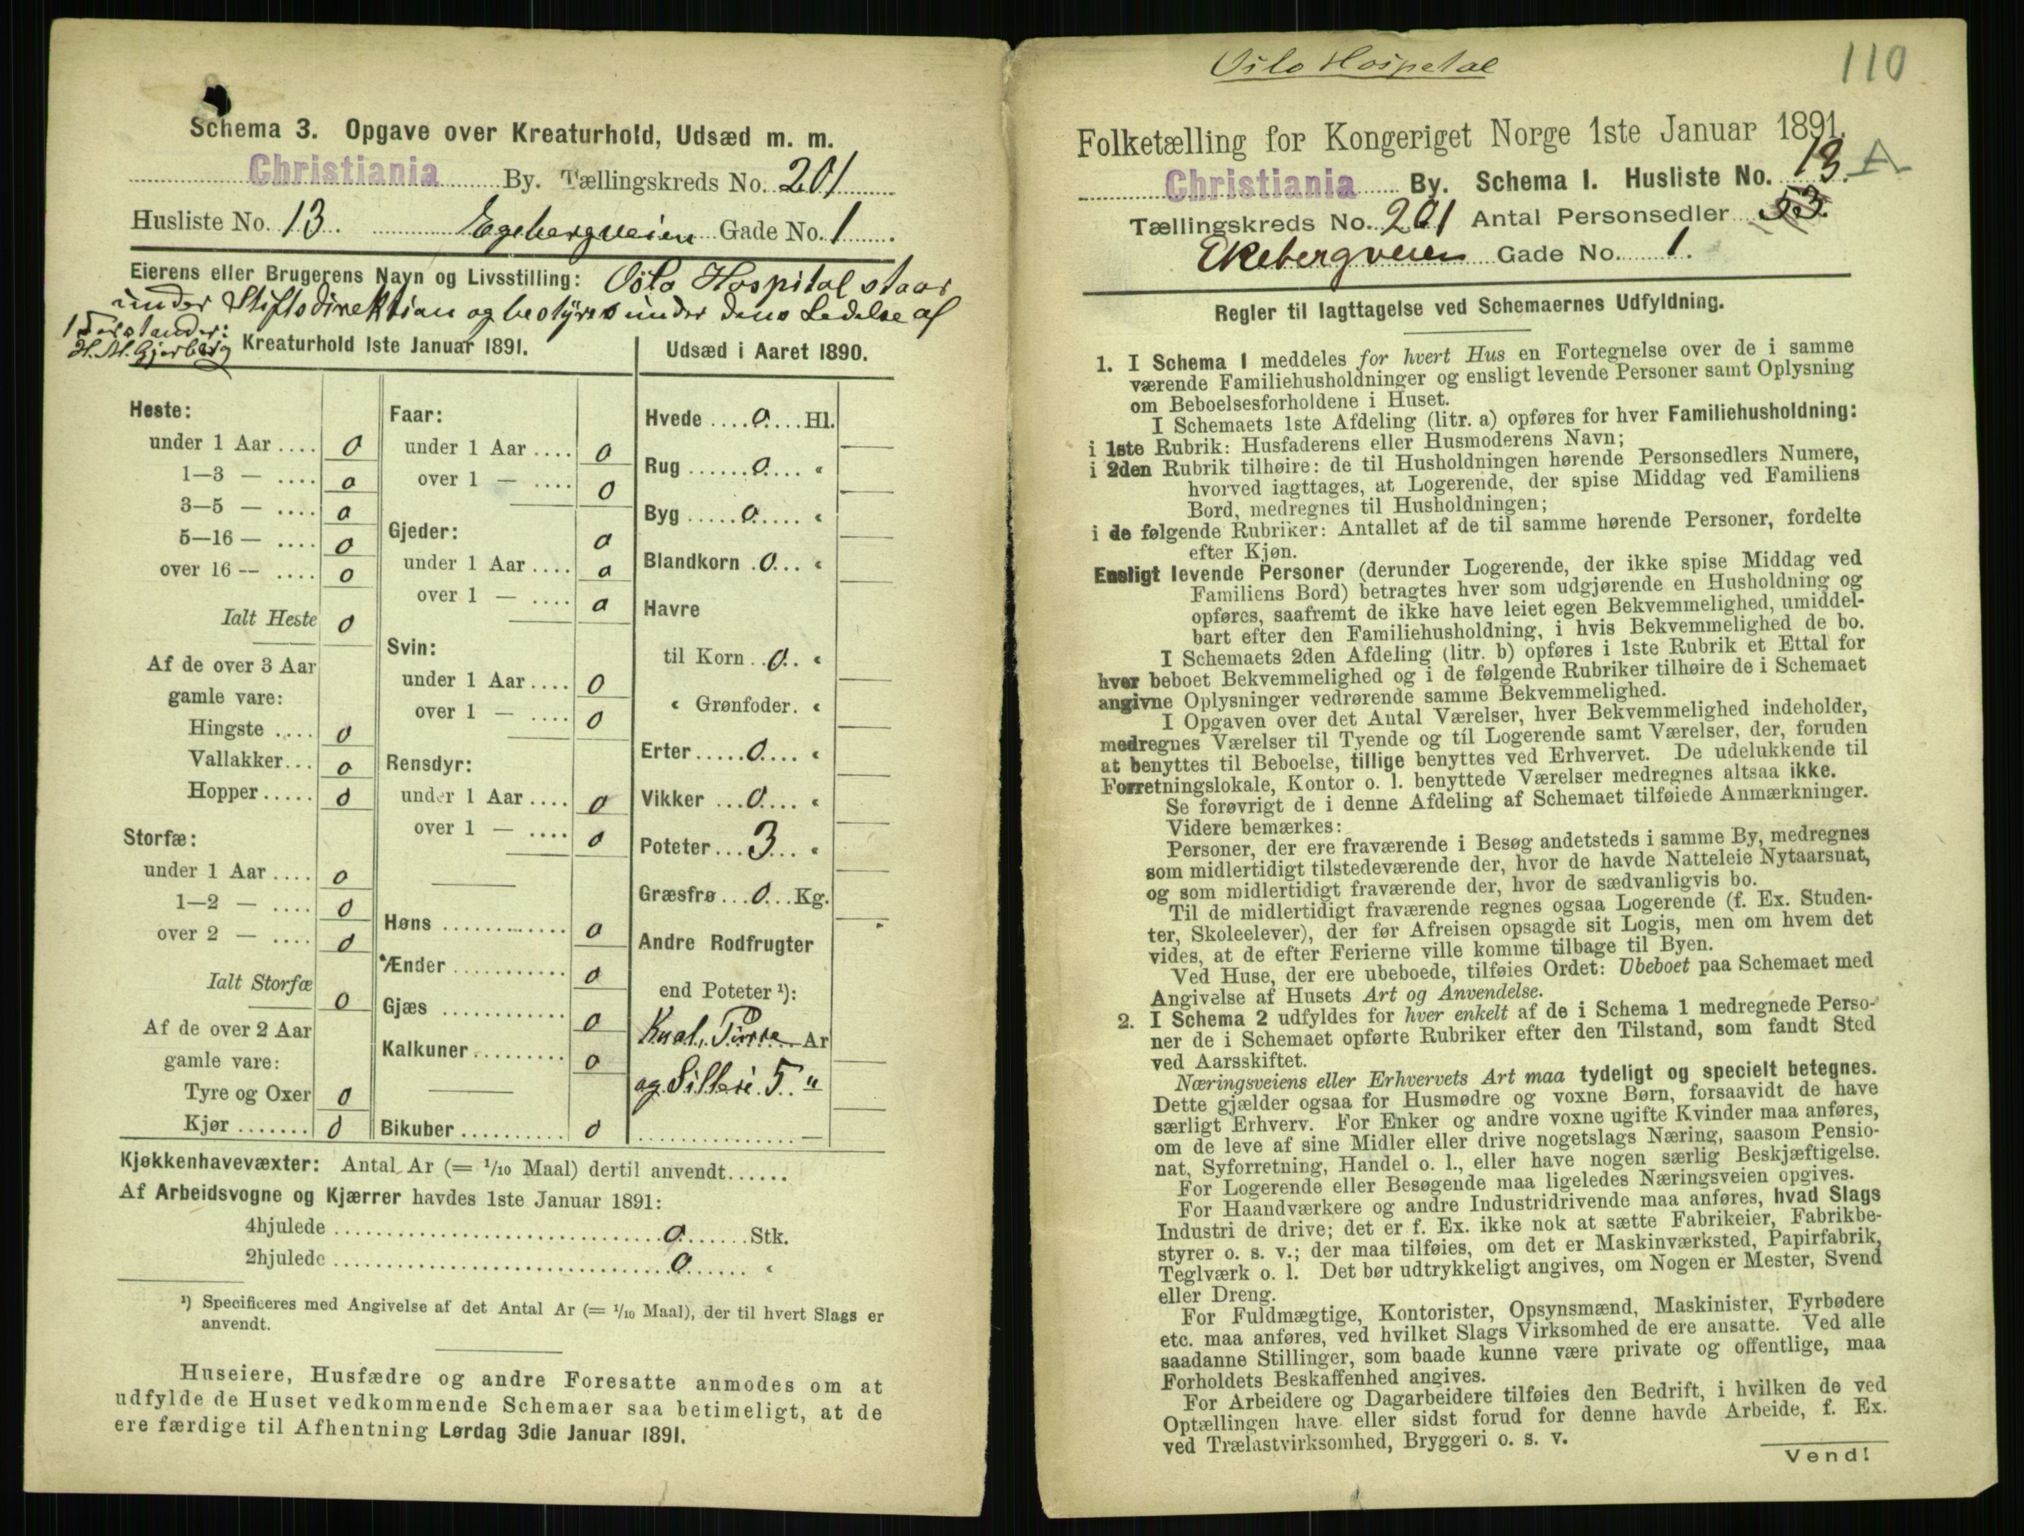 Schema 3. Opgave over Kreaturhold, Udsæd m. m.
Christiania By. Tællingskreds No. 201
Husliste No. 13. Egebergveien Gade No. 1
Eierens eller Brugerens Navn og Livsstilling: Oslo Hospital staar
under Stiftsdirektion og bestyres under dens Ledelse af
1 Forstander:
H. M. Gjerberg
Kreaturhold 1ste Januar 1891.
Heste:
under 1 Aar .... 0
1—3 — .... 0
3—5 — .... 0
5—16 — .... 0
over 16 — .... 0
Ialt Heste 0
Af de over 3 Aar
gamle vare:
Hingste .... 0
Vallakker... 0
Hopper..... 0
Storfæ:
under 1 Aar .... 0
1—2 — .... 0
over 2 — .... 0
Ialt Storfæ 0
Af de over 2 Aar
gamle vare:
Tyre og Oxer 0
Kjør ....... 0
Faar:
under 1 Aar .... 0
over 1 — .... 0
Gjeder: 0
under 1 Aar .... 0
over 1 — .... 0
Svin:
under 1 Aar .... 0
over 1 — .... 0
Rensdyr:
under 1 Aar .... 0
over 1 — .... 0
Høns ............ 0
Ænder ........... 0
Gjæs ............ 0
Kalkuner ......... 0
Bikuber .......... 0
Udsæd i Aaret 1890.
Hvede .... 0 .... Hl.
Rug ...... 0 ... "
Byg ..... 0 .... "
Blandkorn . 0 ... "
Havre
til Korn .. 0 .. "
" Grønfoder. "
Erter ..... 0 .... "
Vikker ... 0 .... "
Poteter ... 3 ... "
Græsfrø ... 0 ... Kg.
Andre Rodfrugter
end Poteter ¹):
Kaal, Purre Ar
og Silleri 5. "
Kjøkkenhavevæxter: Antal Ar (= 1/10 Maal) dertil anvendt......
Af Arbeidsvogne og Kjærrer havdes 1ste Januar 1891:
4hjulede ............ 0 ...... Stk.
2hjulede ............ 0 ...... "
¹) Specificeres med Angivelse af det Antal Ar (= 1/10 Maal), der til hvert Slags er
anvendt.
Huseiere, Husfædre og andre Foresatte anmodes om at
udfylde de Huset vedkommende Schemaer saa betimeligt, at de
ere færdige til Afhentning Lørdag 3die Januar 1891.
Oslo Hospetal
110
Folketælling for Kongeriget Norge 1ste Januar 1891.
Christiania By. Schema I. Husliste No. 13. A
Tællingskreds No. 201 Antal Personsedler 53.
Ekebergveien Gade No. 1.
Regler til Iagttagelse ved Schemaernes Udfyldning.
1. I Schema 1 meddeles for hvert Hus en Fortegnelse over de i samme
værende Familiehusholdninger og ensligt levende Personer samt Oplysning
om Beboelsesforholdene i Huset.
I Schemaets 1ste Afdeling (litr. a) opføres for hver Familiehusholdning:
i 1ste Rubrik: Husfaderens eller Husmoderens Navn;
i 2den Rubrik tilhøire: de til Husholdningen hørende Personsedlers Numere,
hvorved iagttages, at Logerende, der spise Middag ved Familiens
Bord, medregnes til Husholdningen;
i de følgende Rubriker: Antallet af de til samme hørende Personer, fordelte
efter Kjøn.
Ensligt levende Personer (derunder Logerende, der ikke spise Middag ved
Familiens Bord) betragtes hver som udgjørende en Husholdning og
opføres, saafremt de ikke have leiet egen Bekvemmelighed, umiddel-
bart efter den Familiehusholdning, i hvis Bekvemmelighed de bo.
I Schemaets 2den Afdeling (litr. b) opføres i 1ste Rubrik et Ettal for
hver beboet Bekvemmelighed og i de følgende Rubriker tilhøire de i Schemaet
angivne Oplysninger vedrørende samme Bekvemmelighed.
I Opgaven over det Antal Værelser, hver Bekvemmelighed indeholder,
medregnes Værelser til Tyende og til Logerende samt Værelser, der, foruden
at benyttes til Beboelse, tillige benyttes ved Erhvervet. De udelukkende til
Forretningslokale, Kontor o. l. benyttede Værelser medregnes altsaa ikke.
Se forøvrigt de i denne Afdeling af Schemaet tilføiede Anmærkninger.
Videre bemærkes:
Personer, der ere fraværende i Besøg andetsteds i samme By, medregnes
som midlertidigt tilstedeværende der, hvor de havde Natteleie Nytaarsnat,
og som midlertidigt fraværende der, hvor de sædvanligvis bo.
Til de midlertidigt fraværende regnes ogsaa Logerende (f. Ex. Studen-
ter, Skoleelever), der før Afreisen opsagde sit Logis, men om hvem det
vides, at de efter Ferierne ville komme tilbage til Byen.
Ved Huse, der ere ubeboede, tilføies Ordet: Ubeboet paa Schemaet med
Angivelse af Husets Art og Anvendelse.
2. I Schema 2 udfyldes for hver enkelt af de i Schema 1 medregnede Perso-
ner de i Schemaet opførte Rubriker efter den Tilstand, som fandt Sted
ved Aarsskiftet.
Næringsveiens eller Erhvervets Art maa tydeligt og specielt betegnes.
Dette gjælder ogsaa for Husmødre og voxne Børn, forsaavidt de have
særligt Erhverv. For Enker og andre voxne ugifte Kvinder maa anføres,
om de leve af sine Midler eller drive nogetslags Næring, saasom Pensio-
nat, Syforretning, Handel o. l., eller have nogen særlig Beskjæftigelse.
For Logerende eller Besøgende maa ligeledes Næringsveien opgives.
For Haandværkere og andre Industridrivende maa anføres, hvad Slags
Industri de drive; det er f. Ex. ikke nok at sætte Fabrikeier, Fabrikbe-
styrer o. s. v.; der maa tilføies, om det er Maskinværksted, Papirfabrik,
Teglværk o. l. Det bør udtrykkeligt angives, om Nogen er Mester, Svend
eller Dreng.
For Fuldmægtige, Kontorister, Opsynsmænd, Maskinister, Fyrbødere
etc. maa anføres, ved hvilket Slags Virksomhed de ere ansatte. Ved alle
saadanne Stillinger, som baade kunne være private og offentlige, maa
Forholdets Beskaffenhed angives.
For Arbeidere og Dagarbeidere tilføies den Bedrift, i hvilken de ved
Optællingen have eller sidst forud for denne havde Arbeide, f. Ex.
ved Trælastvirksomhed, Bryggeri o. s. v.
Vend!